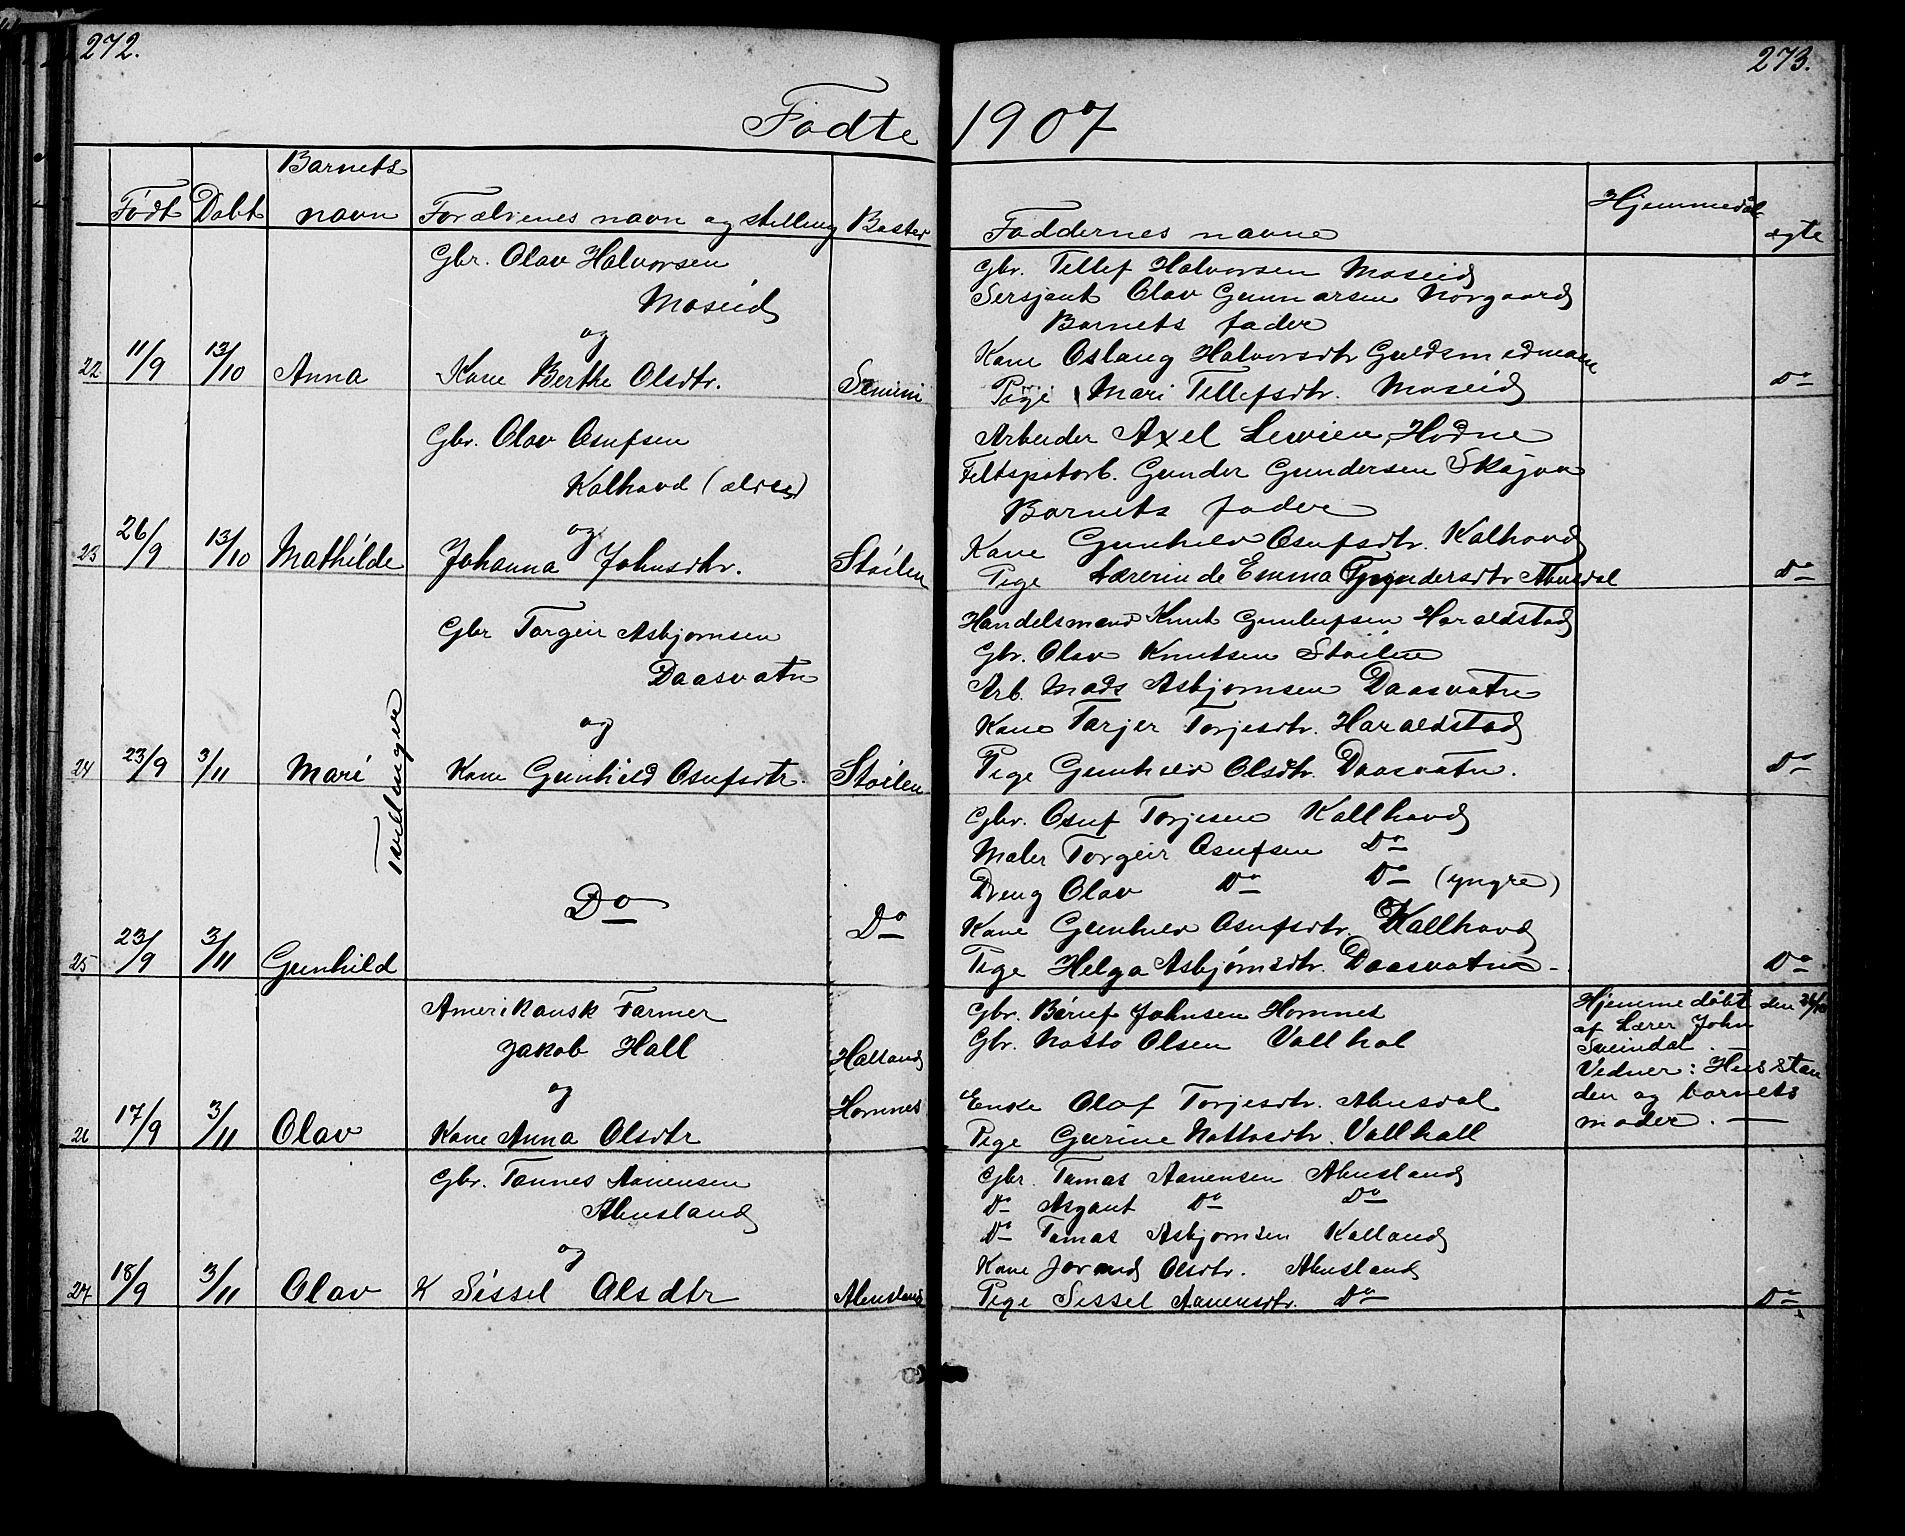 272.
273.
Fødte 1907
Født Døbt Barnets navn Forældrenes navn og stilling Bosted Faddernes navne Hjemmedøbt ægte
Gbr. Olav Halvorsen
Moseid
og
22 11/9 13/10 Anna Kone Berthe Olsdtr.
Gbr. Tellef Halvorsen Moseid
Sersjant Olav Gunnarsen Norgaard
Barnets fader
Kone Oslaug Halvorsdtr
Pige Mari Tellefsdtr. Moseid Do
Gbr. Olav Osufsen
Kalhovd (ældre)
og
23 26/9 13/10 Mathilde Johanna Johnsdtr. Støilen
Arbeider Axel Hodne
Feltspatarb. Gunder Gundersen
Barnets fader
Kone Gunhild Osufsdtr. Kalhovd
Pige Lærerinde Emma Do
Gbr Torgeir Asbjørnsen
Daasvatn
og
24 23/9 3/11 Mari Kone Gunhild Osufsdtr. Støilen
Tvillinger
Handelsmand Knut Gunleifsen Haraldstad
Gbr. Olav Knutsen Støilen
Arb. Mads Asbjørnsen Daasvatn
Kone Tarjer Torjesdtr. Haraldstad
Pige Gunhild Olsdtr. Daasvatn. Do
Do
25 23/9 3/11 Gunhild Do
Gbr. Osuf Torjesen Kallhovd
Maler Torgeir Osufsen Do
Dreng Olav Do Do (yngre)
Kone Gunhild Osufsdtr. Kallhovd
Pige Helga Asbjørnsdtr. Daasvatn - Do
Amerikansk Farmer
Jakob Hall
og
26 17/9 3/11 Olav Kone Anna Olsdtr
Hornnes
Gbr. Johnsen Hornnes
Gbr. Notto Olsen Vallhal
Enke Olaf Torjesdtr.
Pige Gurine Nottosdtr. Vallhall
Hjemmedøbt den
af Lærer John
Sveindal. -
Vidner: Husstan
den og barnets
moder. -
Gbr. Tønnes Aanensen
Abusland
og
27 18/9 3/11 Olav K Sissel Olsdtr Abusland
Gbr. Tomas Aanensen Abusland
Do Asgaut Do Do
Do Tomas Asbjørnsen Kalland
Kone Jorand Olsdtr. Abusland
Pige Sissel Aanensdtr. Do Do